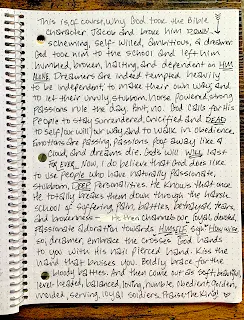 This is, of course, why God took the Bible
character Jacob and broke him DOWN-
scheming, self-willed, ambitious, a dreamer
took him to the school and left him
humbled, broken, halting, and dependent on HIM
ALONE. Dreamers are indeed tempted heavily
to be independent; to make their own way and
to let their unruly, stubborn, horse powered, strong
passions rule the day. But, no. God calls for His
People to stay surrendered, crucified and DEAD
to self/our will/our way and to walk in obedience.
Emotions are passing, passions poof away like a
cloud, and dreams die. God's will WILL last
FOREVER. Now, I do believe that God does like
to use people who have naturally passionate,
stubborn, DEEP personalities. He knows that once
He totally breaks them down through the harsh
school of suffering, pain, battles, betrayals, tears,
and brokenness - He then channels our loyal, devoted,
passionate adoration towards HIMSELF.
so, dreamer, embrace the crosses God hands
to you with His nail pierced hand. Kiss the
hand that bruises you. Boldly brace for the
bloody battles. And then come out as soft, beautiful,
level-headed, balanced, loving, humble, obedient, golden,
molded, serving, loyal soldiers. Praise the King!